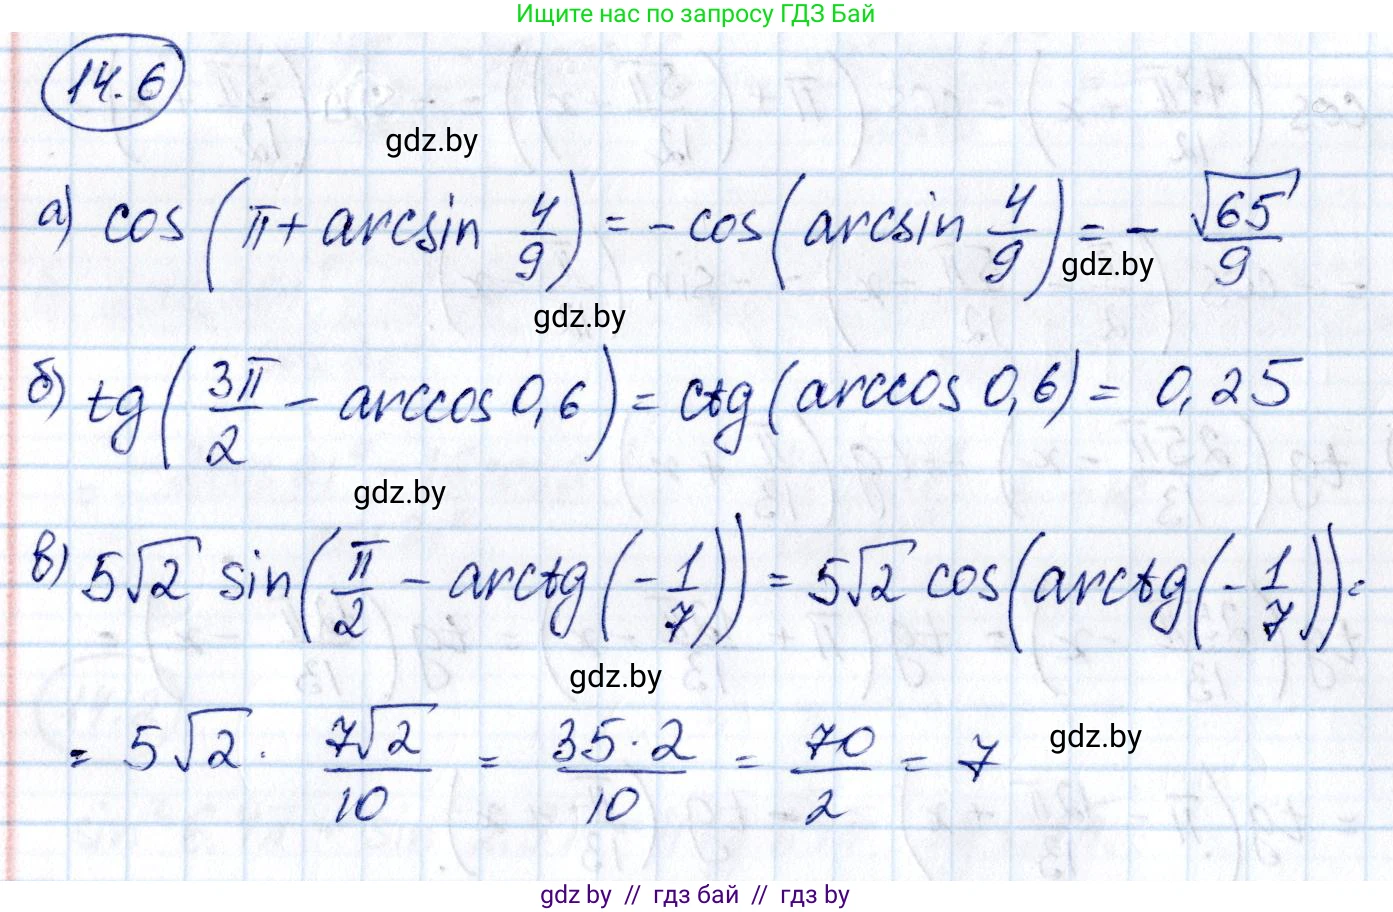 Ищите нас по запросу ГДЗ Бай
14.6
gdz.by
а) cos (π + arcsin 4/9) = - cos (arcsin 4/9) = - √65/9
gdz.by
gdz.by
б) tg (3π/2 - arccos 0,6) = ctg (arccos 0,6) = 0,25
gdz.by
в) 5√2 sin (π/2 - arctg (-1/7)) = 5√2 cos (arctg (-1/7)) =
gdz.by
= 5√2 · 7√2/10 = 35·2/10 = 70/2 = 7
gdz.by
gdz by // гдз бай // gdz by